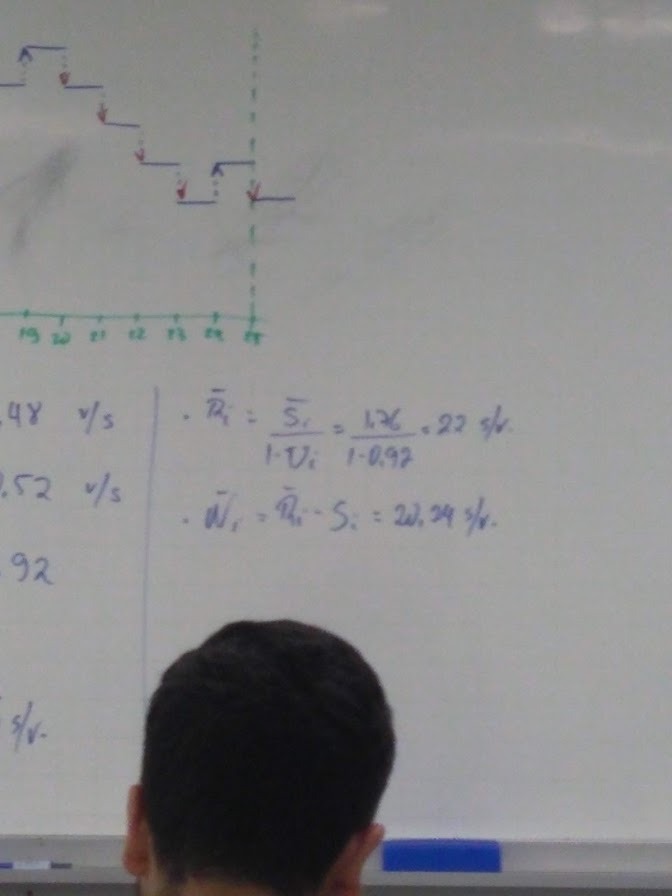 19 20 21 22 23 24 25
.48 v/s
0.52 v/s
.92
s/v.
· R̄i = S̄i / 1-Ui = 1.76 / 1-0.92 = 22 s/v.
· W̄i = R̄i - Si = 20.24 s/v.